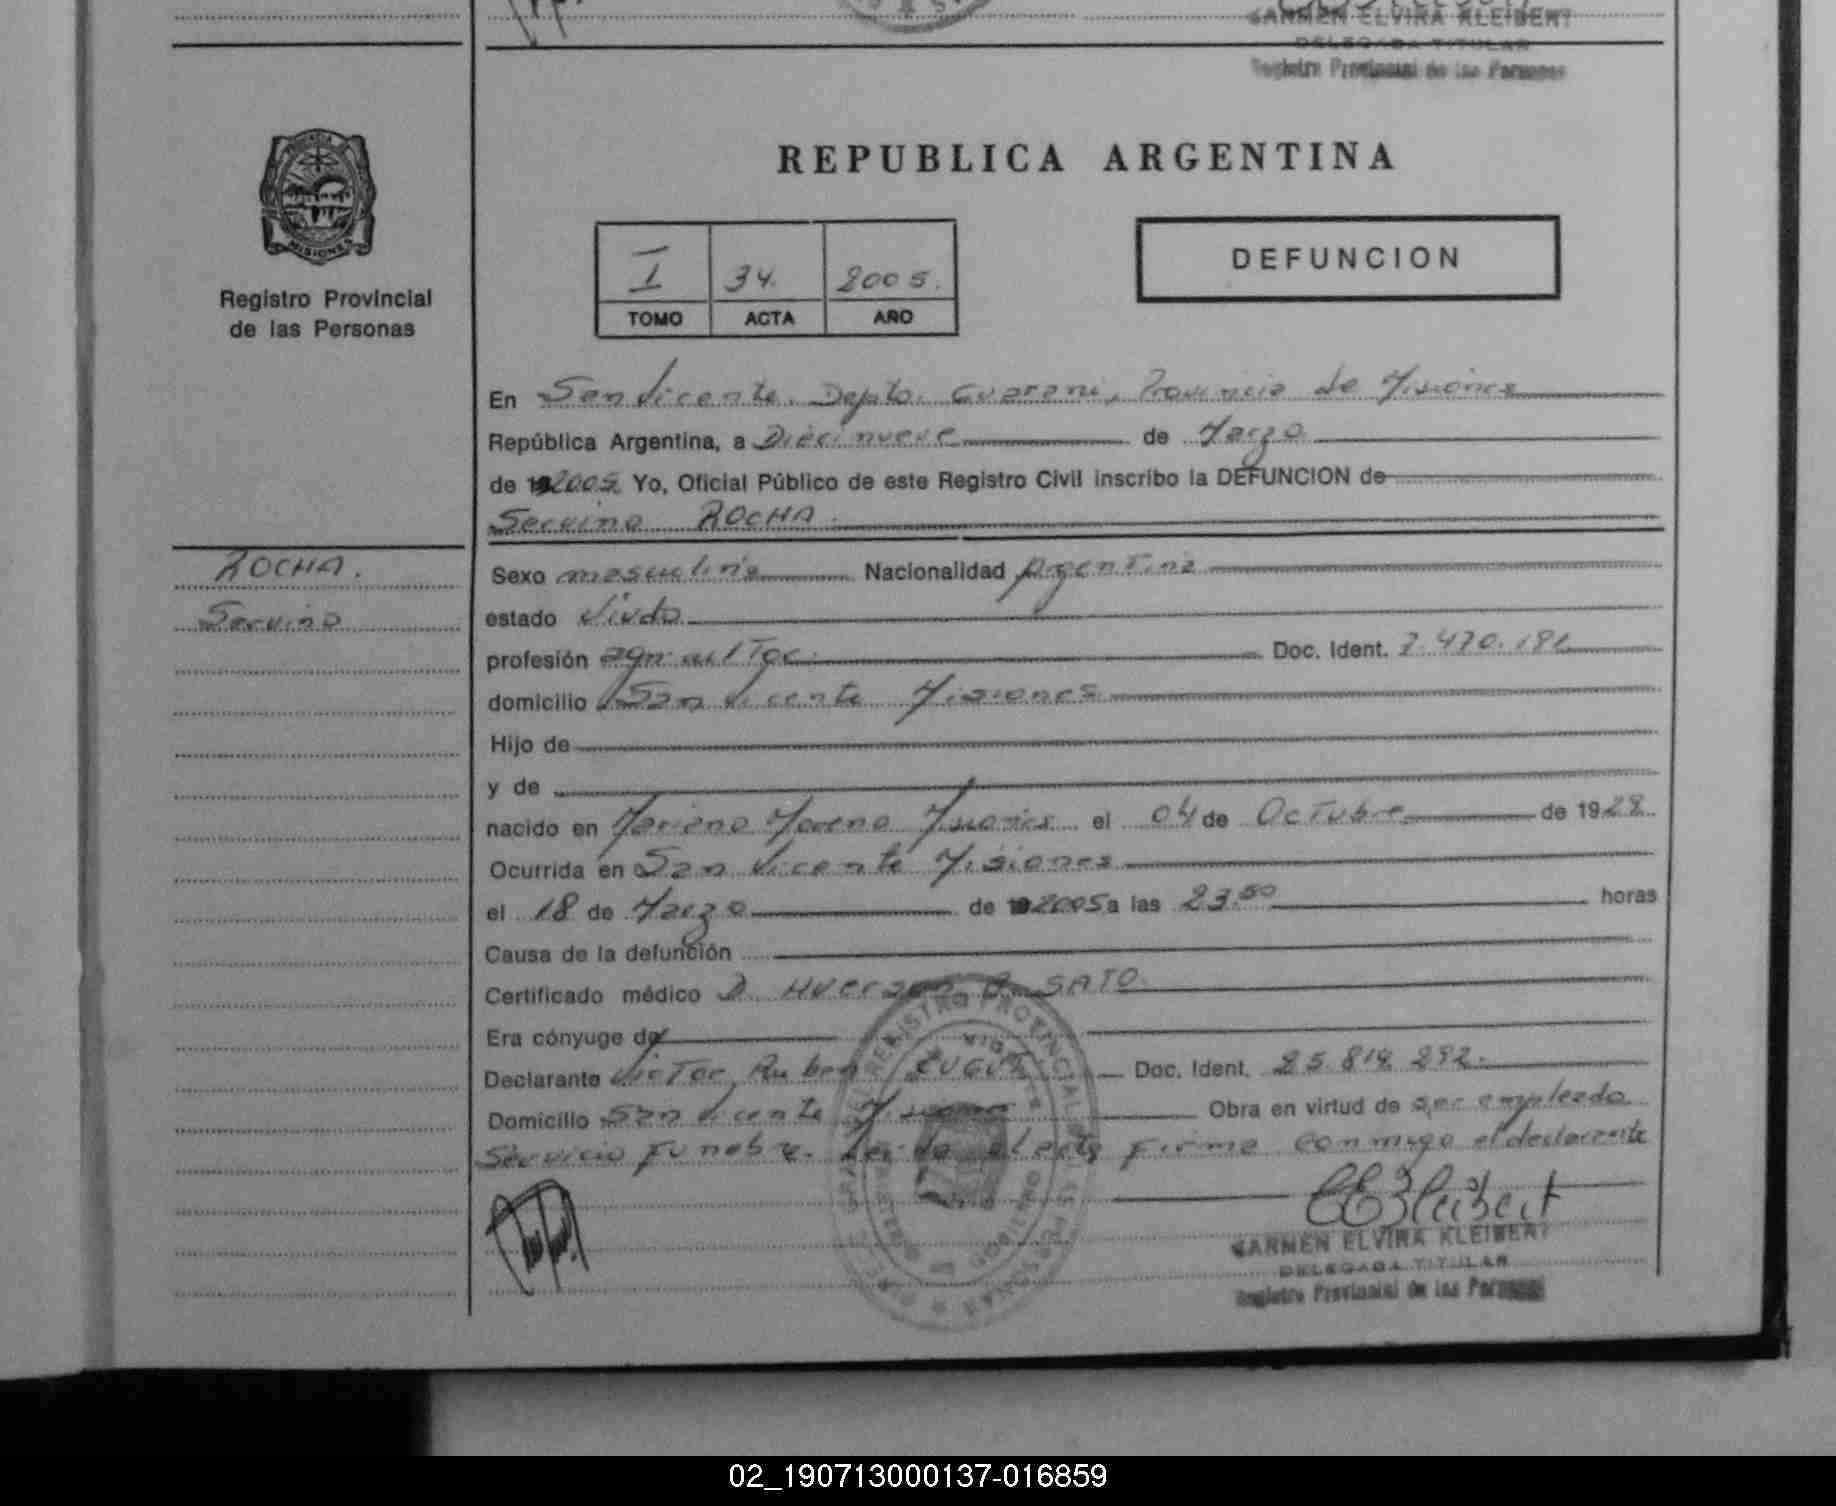 CARMEN ELVIRA KLEIBERT
DELEGADA TITULAR
Registro Provincial de las Personas
PROVINCIA DE
MISIONES
Registro Provincial
de las Personas
REPUBLICA ARGENTINA
I 34. 2005.
TOMO ACTA AÑO
DEFUNCION
En San Vicente. Depto. Guarani, Provincia de Misiones
República Argentina, a Diecinueve de Marzo
de 192005. Yo, Oficial Público de este Registro Civil inscribo la DEFUNCION de
Servino ROCHA.
ROCHA.
Servino
Sexo masculino Nacionalidad Argentina
estado Viudo
profesión agricultor. Doc. Ident. 7.470.181
domicilio San Vicente Misiones
Hijo de
y de
nacido en Mariano Moreno Misiones el 04 de Octubre de 1928.
Ocurrida en San Vicente Misiones
el 18 de Marzo de 192005 a las 23.50 horas
Causa de la defunción
Certificado médico D. SATO.
Era cónyuge de
Declarante Victor Ruben Doc. Ident. 25.814.292.
Domicilio San Vicente Misiones Obra en virtud de ser empleado
Servicio Funebre. Leida el acta firma conmigo el declarante
REGISTRO PROVINCIAL DE LAS PERSONAS
CEKleibert
CARMEN ELVIRA KLEIBERT
DELEGADA TITULAR
Registro Provincial de las Personas
02_190713000137-016859